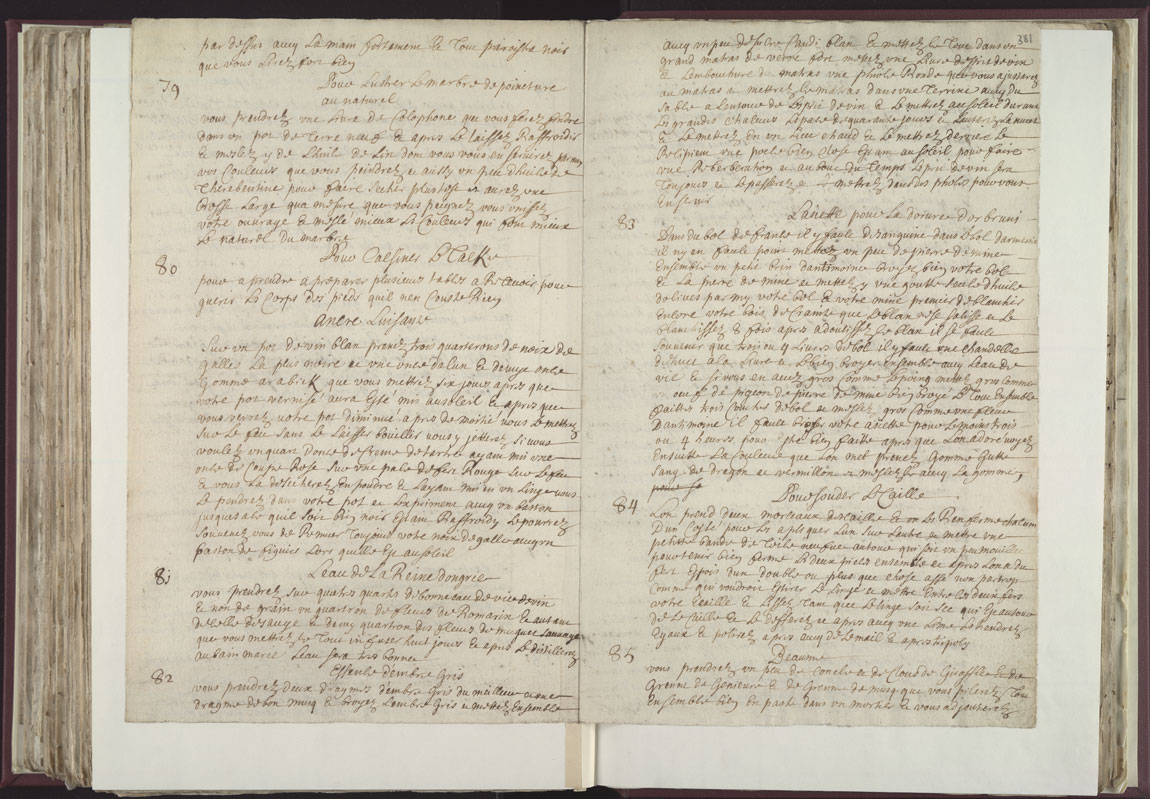 par dessus avecq La main fortement & Tout paroistra noir
que vous Lirez fort bien
79
Pour Lustrer Le marbre de pointure
au naturel
vous prendrez une Livre de Colophone que vous ferez fondre
dans un pot de terre neuf & apres Le laissez Raffroidir
& meslez y de Lhuile de Lin dont vous vous en servirez parmy
vos Couleurs que vous peindrez & aussy un peu dhuile de
Therebentine pour faire secher plustost & aurez une
brosse Large qua mesure que vous peignez vous unissez
votre ouvrage & mesle mieux Les Couleurs qui font mieux
Le naturel du marbre
80
Pour Calsiner Le Talk
pour aprendre a preparer plusieurs tables a Recevoir pour
guerir Les Corps des pieds quil nen Couste Rien
Ancre Luisante
Sur un pot de vin blan prenez trois quarterons de noix de
galle La plus noire & une once dalun & deux once
Gomme arabick que vous mettrez six jours apres que
votre pot vernisé aura esté mis au soleil & apres que
vous verrez votre pot diminué apres de moitié vous Le mettrez
sur Le feu sans Le Laisser bouillir vous y jetterez si vous
voulez un quart donce de Creme de tartre ayant mis une
onse de Coupe Rose sur une pale de fer Rouge sur Le feu
& vous La desecherez en poudre & Layant mis en un Linge vous
Le pendrez dans votre pot & Lexprimerez avecq un baston
jusques a ce quil soit bien noir Estant Raffroidy Le pourrez
souvenez vous de Remuer Toujours votre noix de galle avecq un
baston de figuier Lors quelle Est au soleil
81
Leau de La Reine dongrie
vous prendrez sur quatre quarts de bonne eau de vie de vin
& non de grain un quartron de fleurs de Romarin & autant
de Celle de Sauge & demy quartron des fleurs de muguet sauvage
que vous mettrez Le Tout infuser huit jours & apres Le distillerez
au bain marie Leau sera tres bonne
82
Essence dembre Gris
vous prendrez deux dragmes dembre Gris du meilleur & une
dragme de bon musq & broyez Lembre Gris & mettez Ensemble
381
avecq un peu de sucre Candi blan & mettez Le Tout dans un
grand matras de verre fort mettez une Livre desprit de vin
& Lembouchure du matras une phiole Ronde que vous ajusterez
au matras & mettrez Le matras dans une Terrine avecq du
sable a Lentour de Lesprit de vin & Le mettrez au soleil durant
Les grandes Chaleurs Lespace de quarante jours &
& Le mettrez En un Lieu Chaud & Le mettrez derriere Le
Recipient une poele bien close Estant au soleil pour faire
une Reverberation & au bout du Temps Lesprit de vin sera
Toujours & Le passerez & mettrez dans des phioles pour vous
En servir
83
Lasiette pour La dorure dor bruni
Dans du bol de france il y faut de sanguine dans Le bol darmenie
il ny en faut point mettez un peu de pierre de mine
Ensemble un petit brin dantimoine broyez bien votre bol
& La pierre de mine & mettez y une goutte seule dhuile
dolives parmy votre bol & votre mine premier de blanchir
Encore votre bois de Crainte que Le blan ne se salisse & Le
blanchissez 8 fois apres adoucissez Le blan il se faut
souvenir que trois ou 4 Livres de bol il y faut une chandelle
de suif a La Livre & Le bien broyer Ensemble avecq Leau de
vie & si vous en avez gros comme Le poing mettez gros comme
un oeuf de pigeon de pierre de mine bien broyé Le Tout Ensemble
faittes trois couches de bol & meslez gros comme une fleve
Dantimoine il faut broyer votre asiette pour Le moins trois
ou 4 heures pour estre bien faitte apres que Lon a doré voyez
Ensuitte La Couleur que Lon met prenez Gomme Gutte
sang de dragon & vermillon & meslez Le avecq La gomme
84
Pour souder Lecaille
Lon prend deux morceaux decaille & Renferme chacun
Dun Costé pour Les apliquer Lun sur Lautre & mettre une
petitte bande de toile neufve autour qui soit un peu mouillée
pour tenir bien ferme Les deux pieces ensemble & apres Lon a du
fer Espois dun double ou plus que chose assé non partrop
Comme qui voudroit Estirer Le Linge & mettre Entre ces deux fers
votre Ecaille & Laissez Tant que Le Linge soit sec qui Est autour
de Lecaille & Le desserez & apres avecq une Lime Le rendrez
Egaux & polirez apres avecq de Lemail & apres tripoly
85
Beaume
vous prendrez un peu de Canelle & de Cloud de Girofle & de
Greune de Genieure & de Greune de musq que vous pilerez Tout
Ensemble bien En paste dans un mortier & vous adjouterez